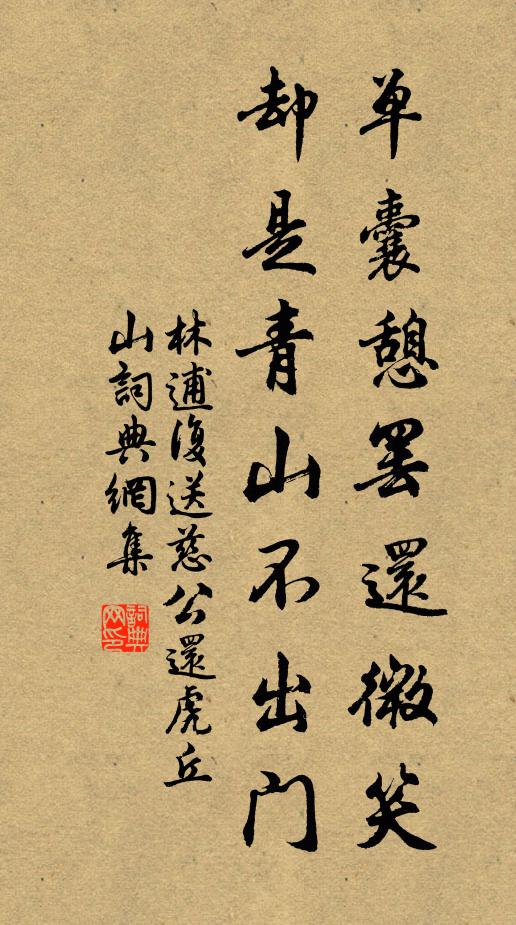 单囊憩罢還微笑
却是青山不出門
林逋復送慈公還虎丘
山詞典網集
詞典网印